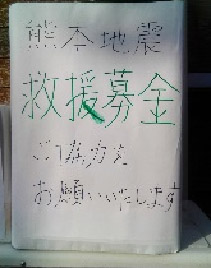 熊本地震
救援募金
ご協力を
お願いいたします